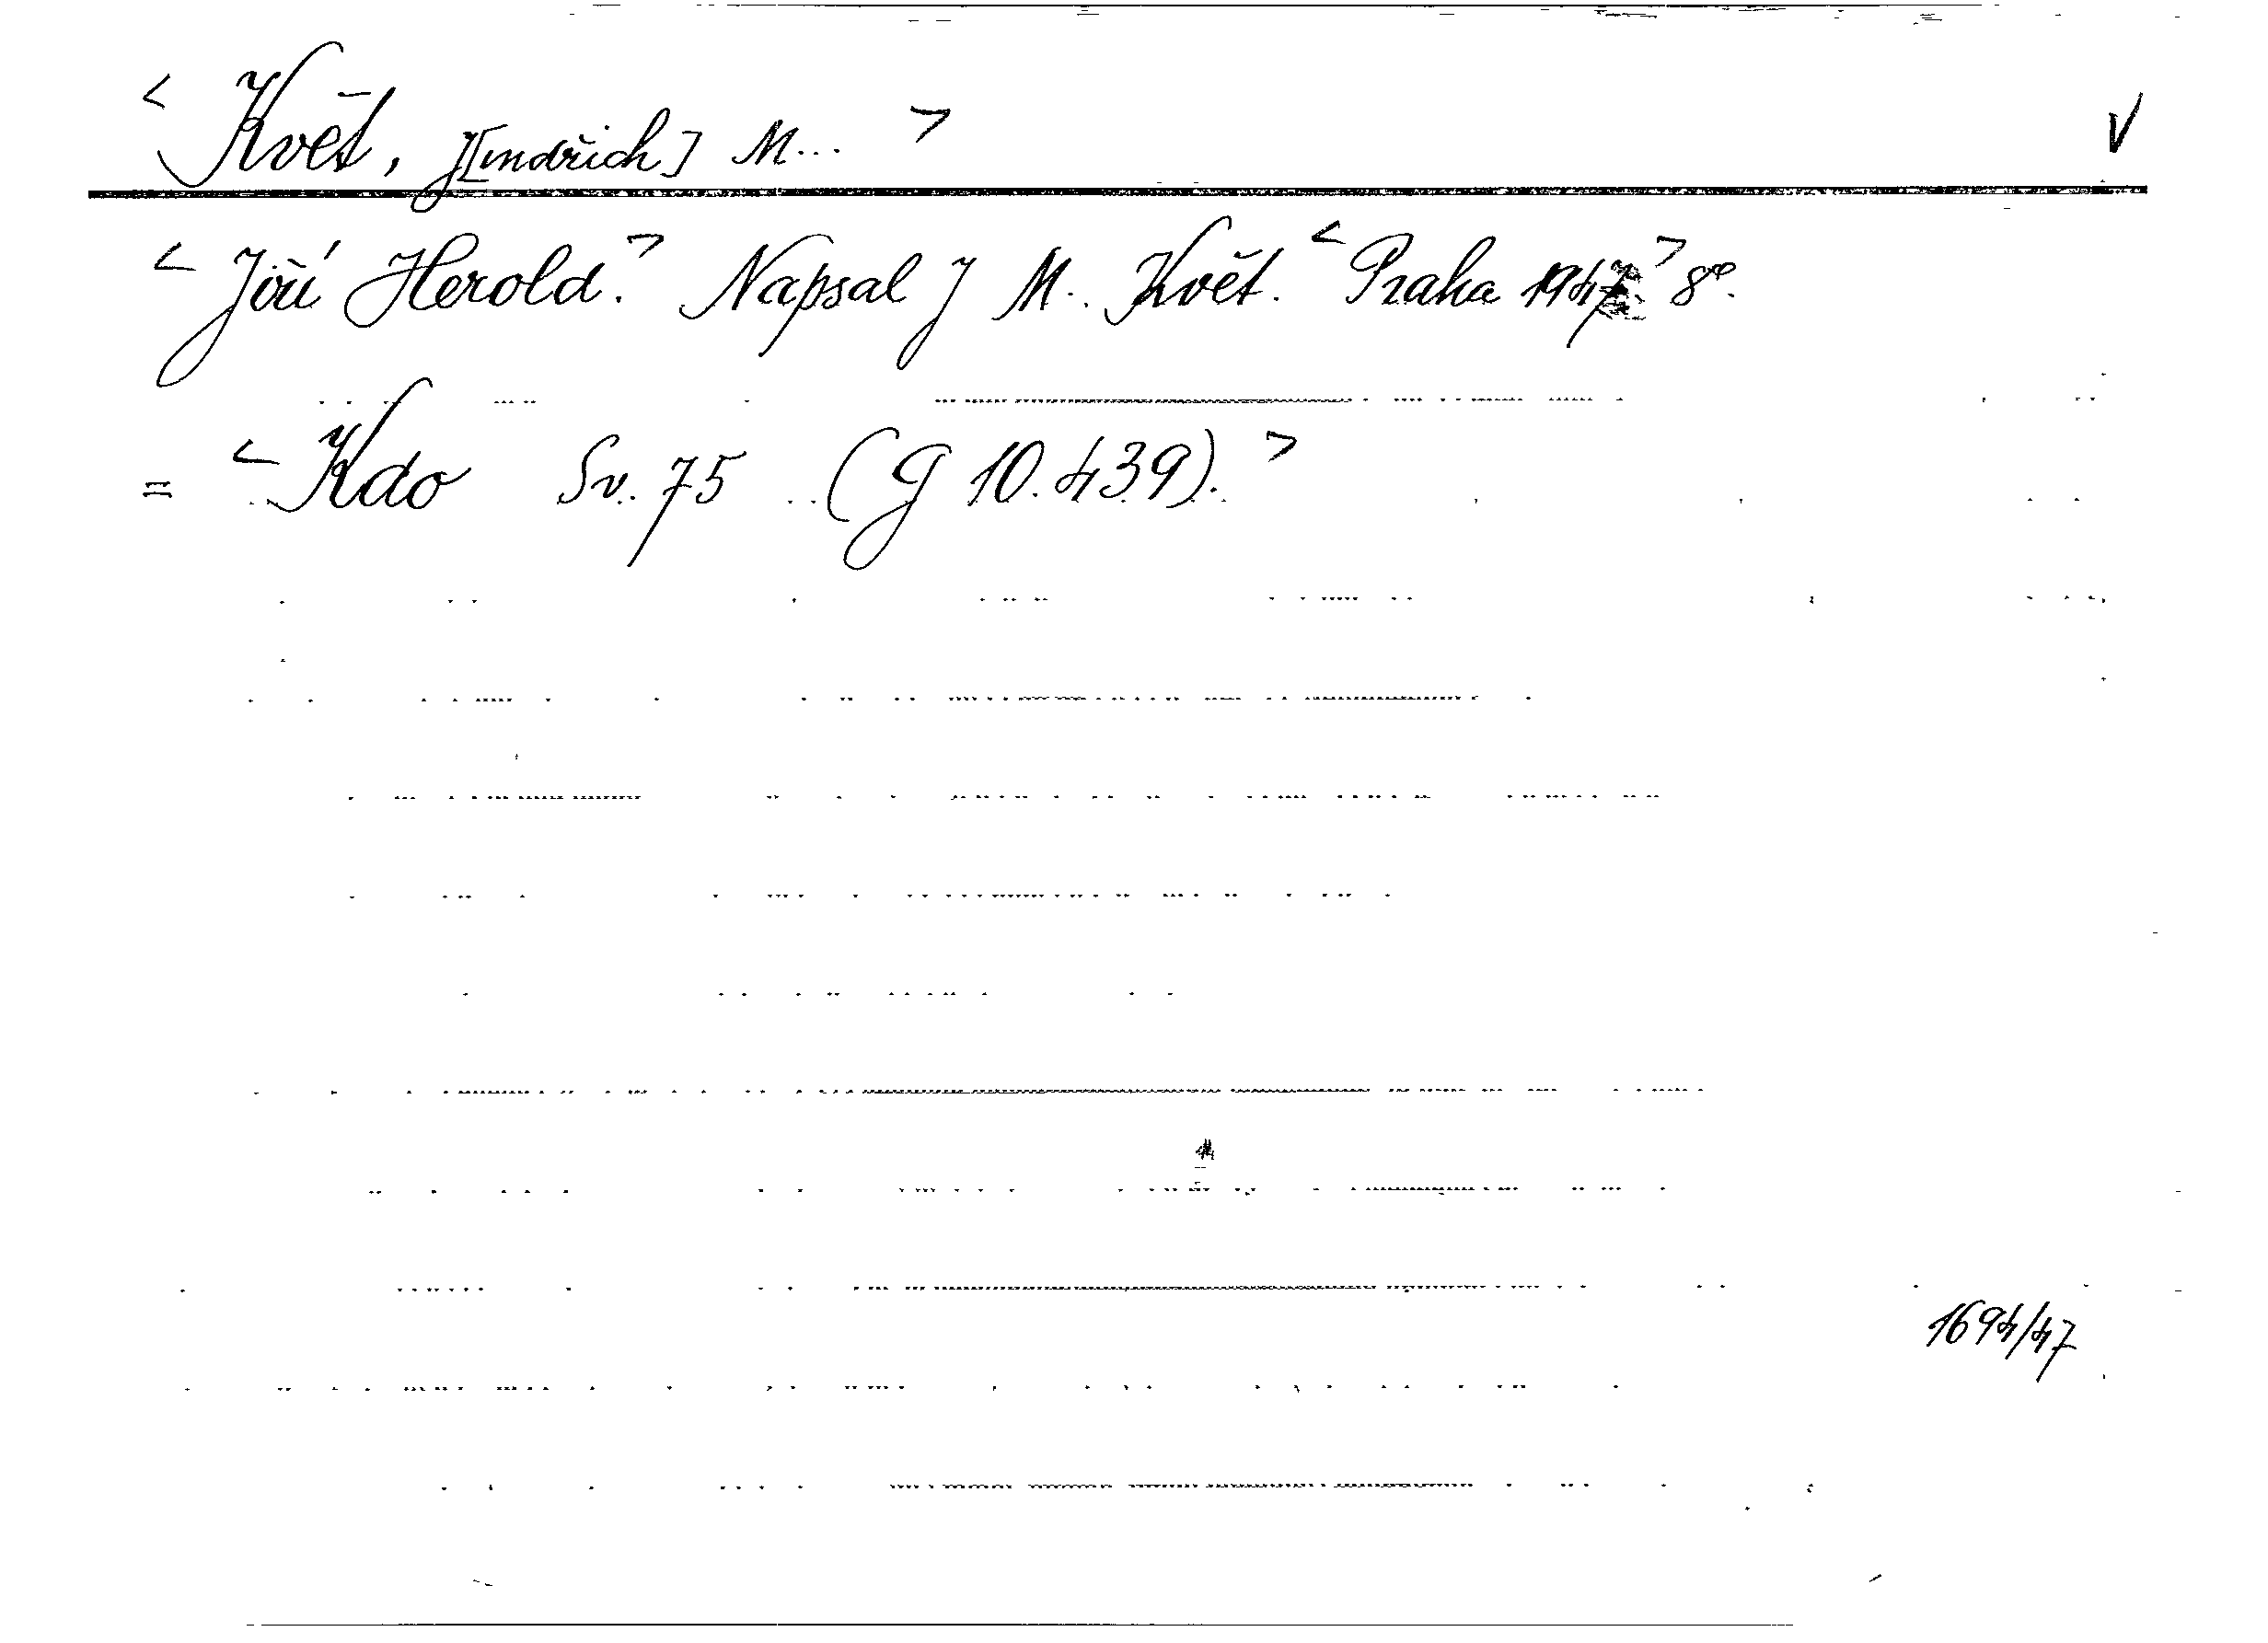 < Květ, J[indřich] M... > V
< Jiří Herold. > Napsal J M.. Květ. < Praha 1947 > 8°.
= < Kdo Sv. 75 (G 10.439). >
1694/47